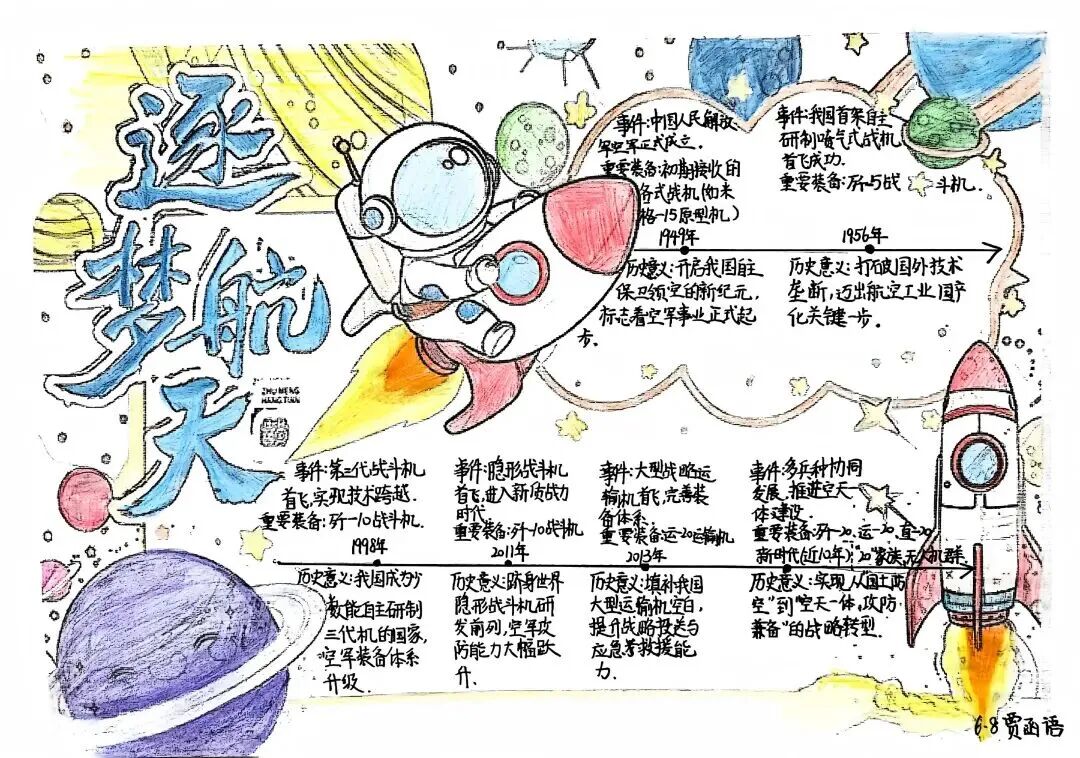 逐
梦航
天
ZHU MENG
HANG TIAN
事件:中国人民解放
军空军正式成立.
重要装备:初期接收的
各式战机(如米
格-15原型机)
1949年
历史意义:开启我国自主
保卫领空的新纪元,
标志着空军事业正式起
步.
事件:我国首架自主
研制喷气式战机
首飞成功.
重要装备:歼-5战斗机.
1956年
历史意义:打破国外技术
垄断,迈出航空工业国产
化关键一步.
事件:第三代战斗机
首飞,实现技术跨越.
重要装备:歼-10战斗机.
1998年
历史意义:我国成为少
数能自主研制
三代机的国家,
空军装备体系
升级.
事件:隐形战斗机
首飞,进入新质战力
时代.
重要装备:歼-10战斗机
2011年
历史意义:跻身世界
隐形战斗机研
发前列,空军攻
防能力大幅跃
升.
事件:大型战略运
输机首飞,完善装
备体系.
重要装备:运-20运输机
2013年
历史意义:填补我国
大型运输机空白,
提升战略投送与
应急救援能
力.
事件:多兵种协同
发展,推进空天一
体建设.
重要装备:歼-20、运-20、直-20
新时代(近10年):"20"家族,无人机群.
历史意义:实现从"国土防
空"到"空天一体,攻防
兼备"的战略转型.
6.8贾函语